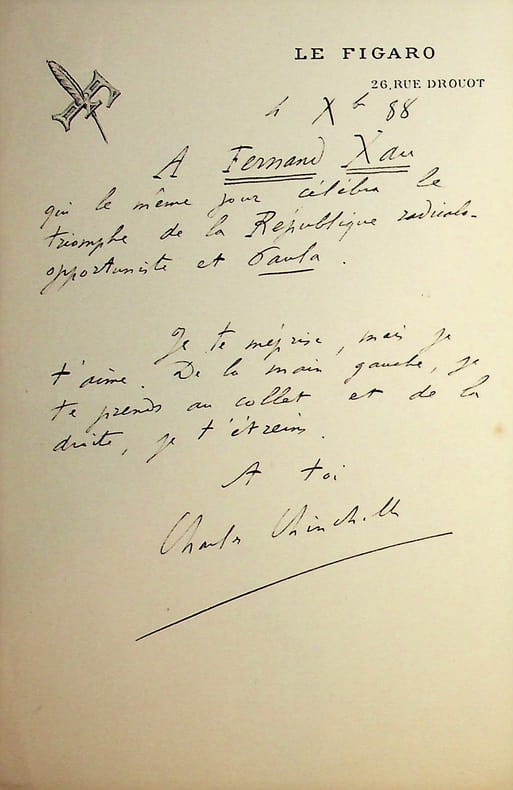 LE FIGARO
26, RUE DROUOT
4 Xbre 88
A Fernand Xau
qui le même jour célébra le
triomphe de la République radicalo-
opportuniste et Paula.
Je te méprise, mais je
t'aime. De la main gauche, je
te prends au collet et de la
droite, je t'étreins.
A toi
Charles Chincholle